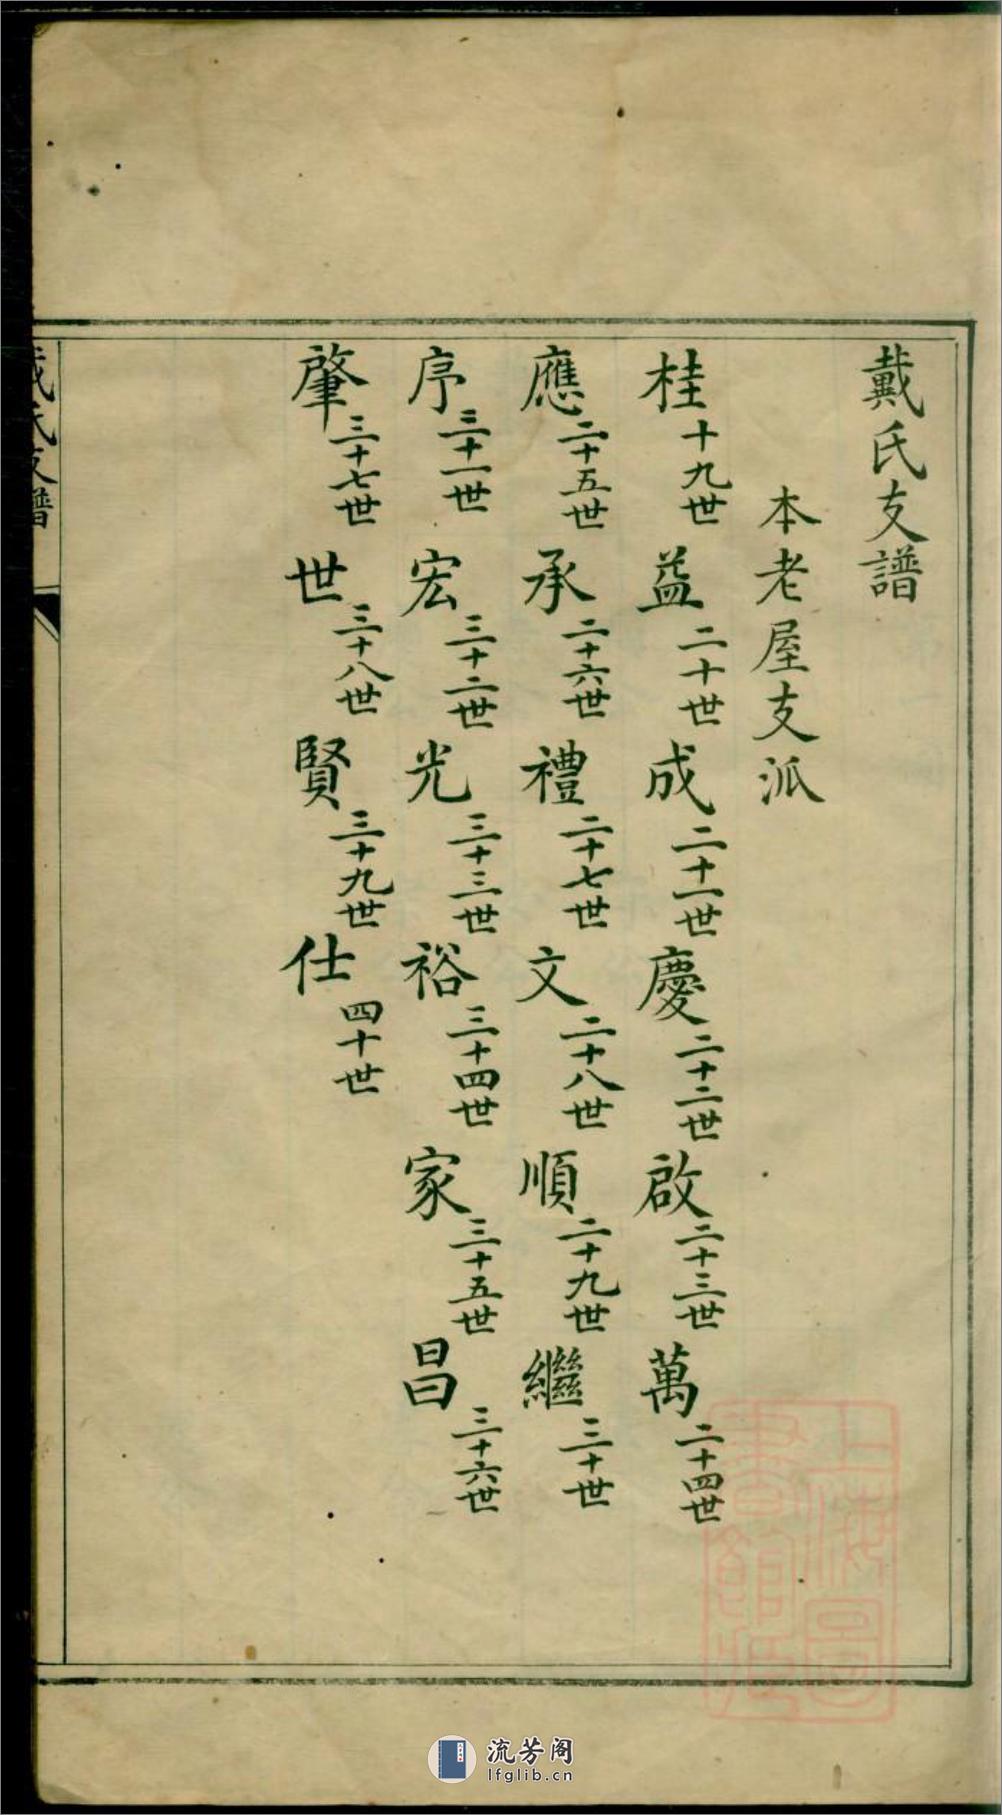 戴氏支譜
本老屋支派
桂十九世益二十世成二十一世慶二十二世啟二十三世萬二十四世
應二十五世承二十六世禮二十七世文二十八世順二十九世繼三十世
序三十一世宏三十二世光三十三世裕三十四世家三十五世昌三十六世
肇三十七世世三十八世賢三十九世仕四十世
戴氏支譜
上海圖書館藏
流芳阁
lfglib.cn